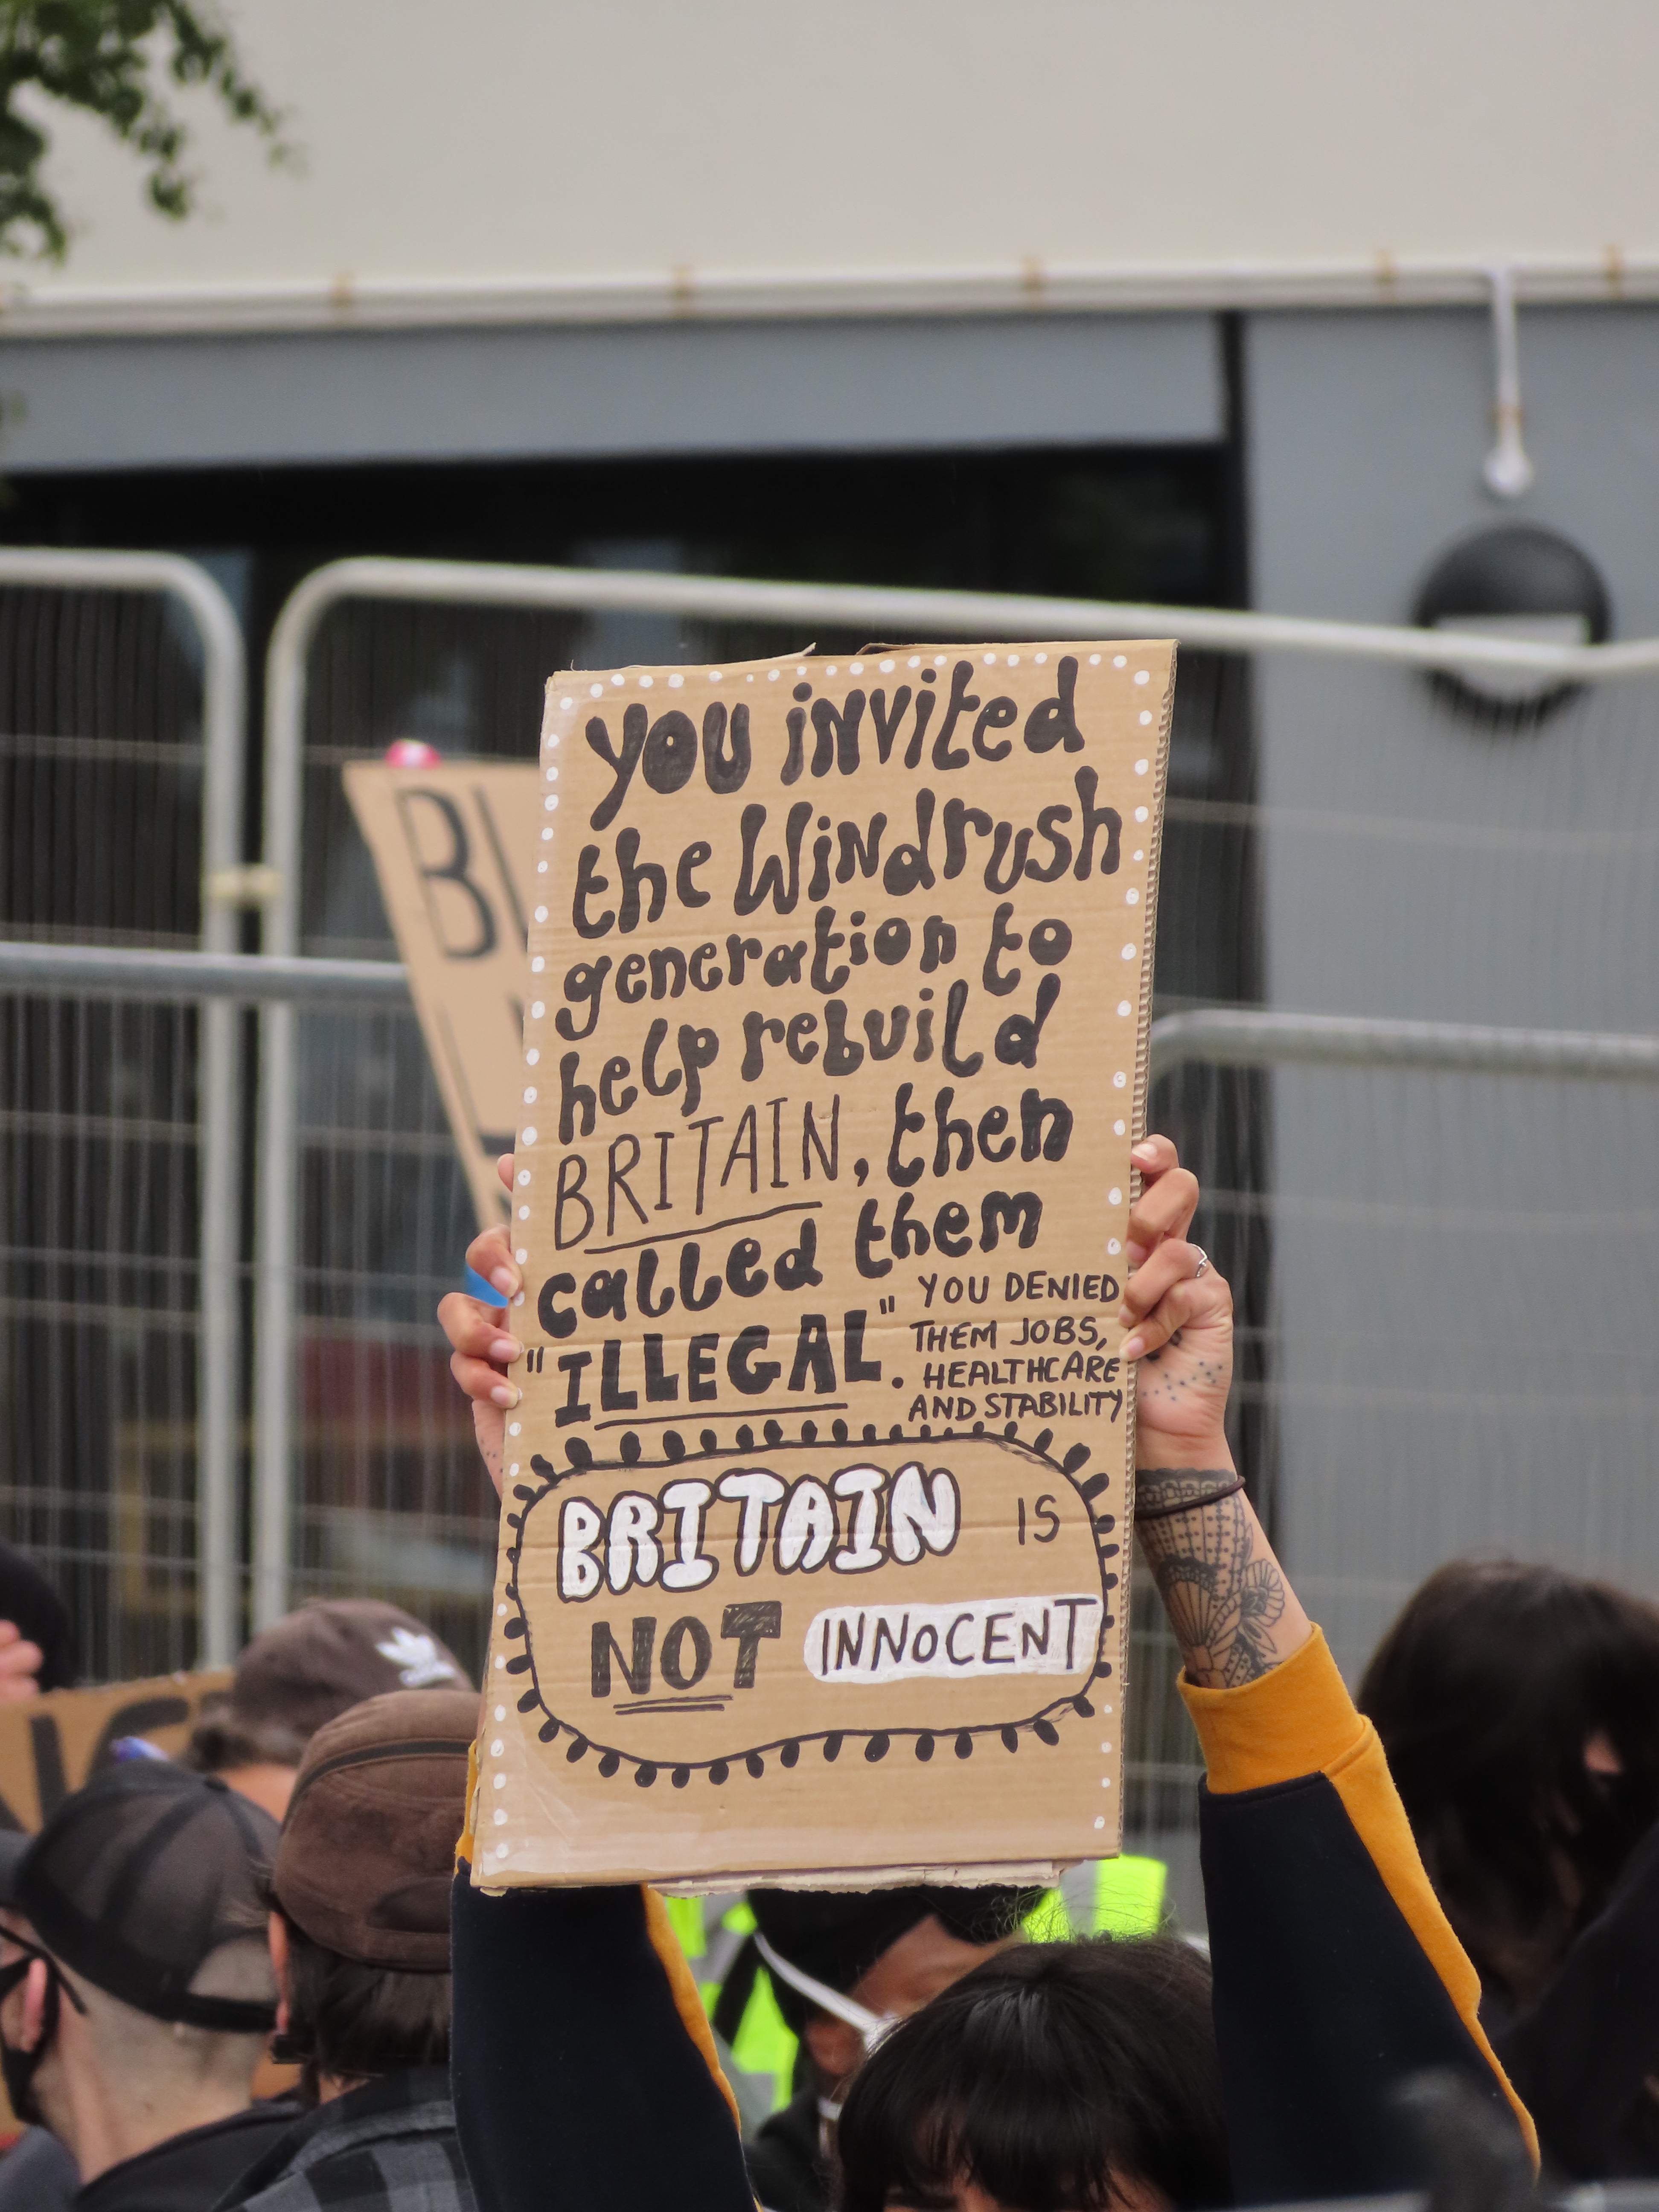 you invited
the Windrush
generation to
help rebuild
BRITAIN, then
called them
"ILLEGAL".
YOU DENIED
THEM JOBS,
HEALTHCARE
AND STABILITY
BRITAIN IS
NOT INNOCENT